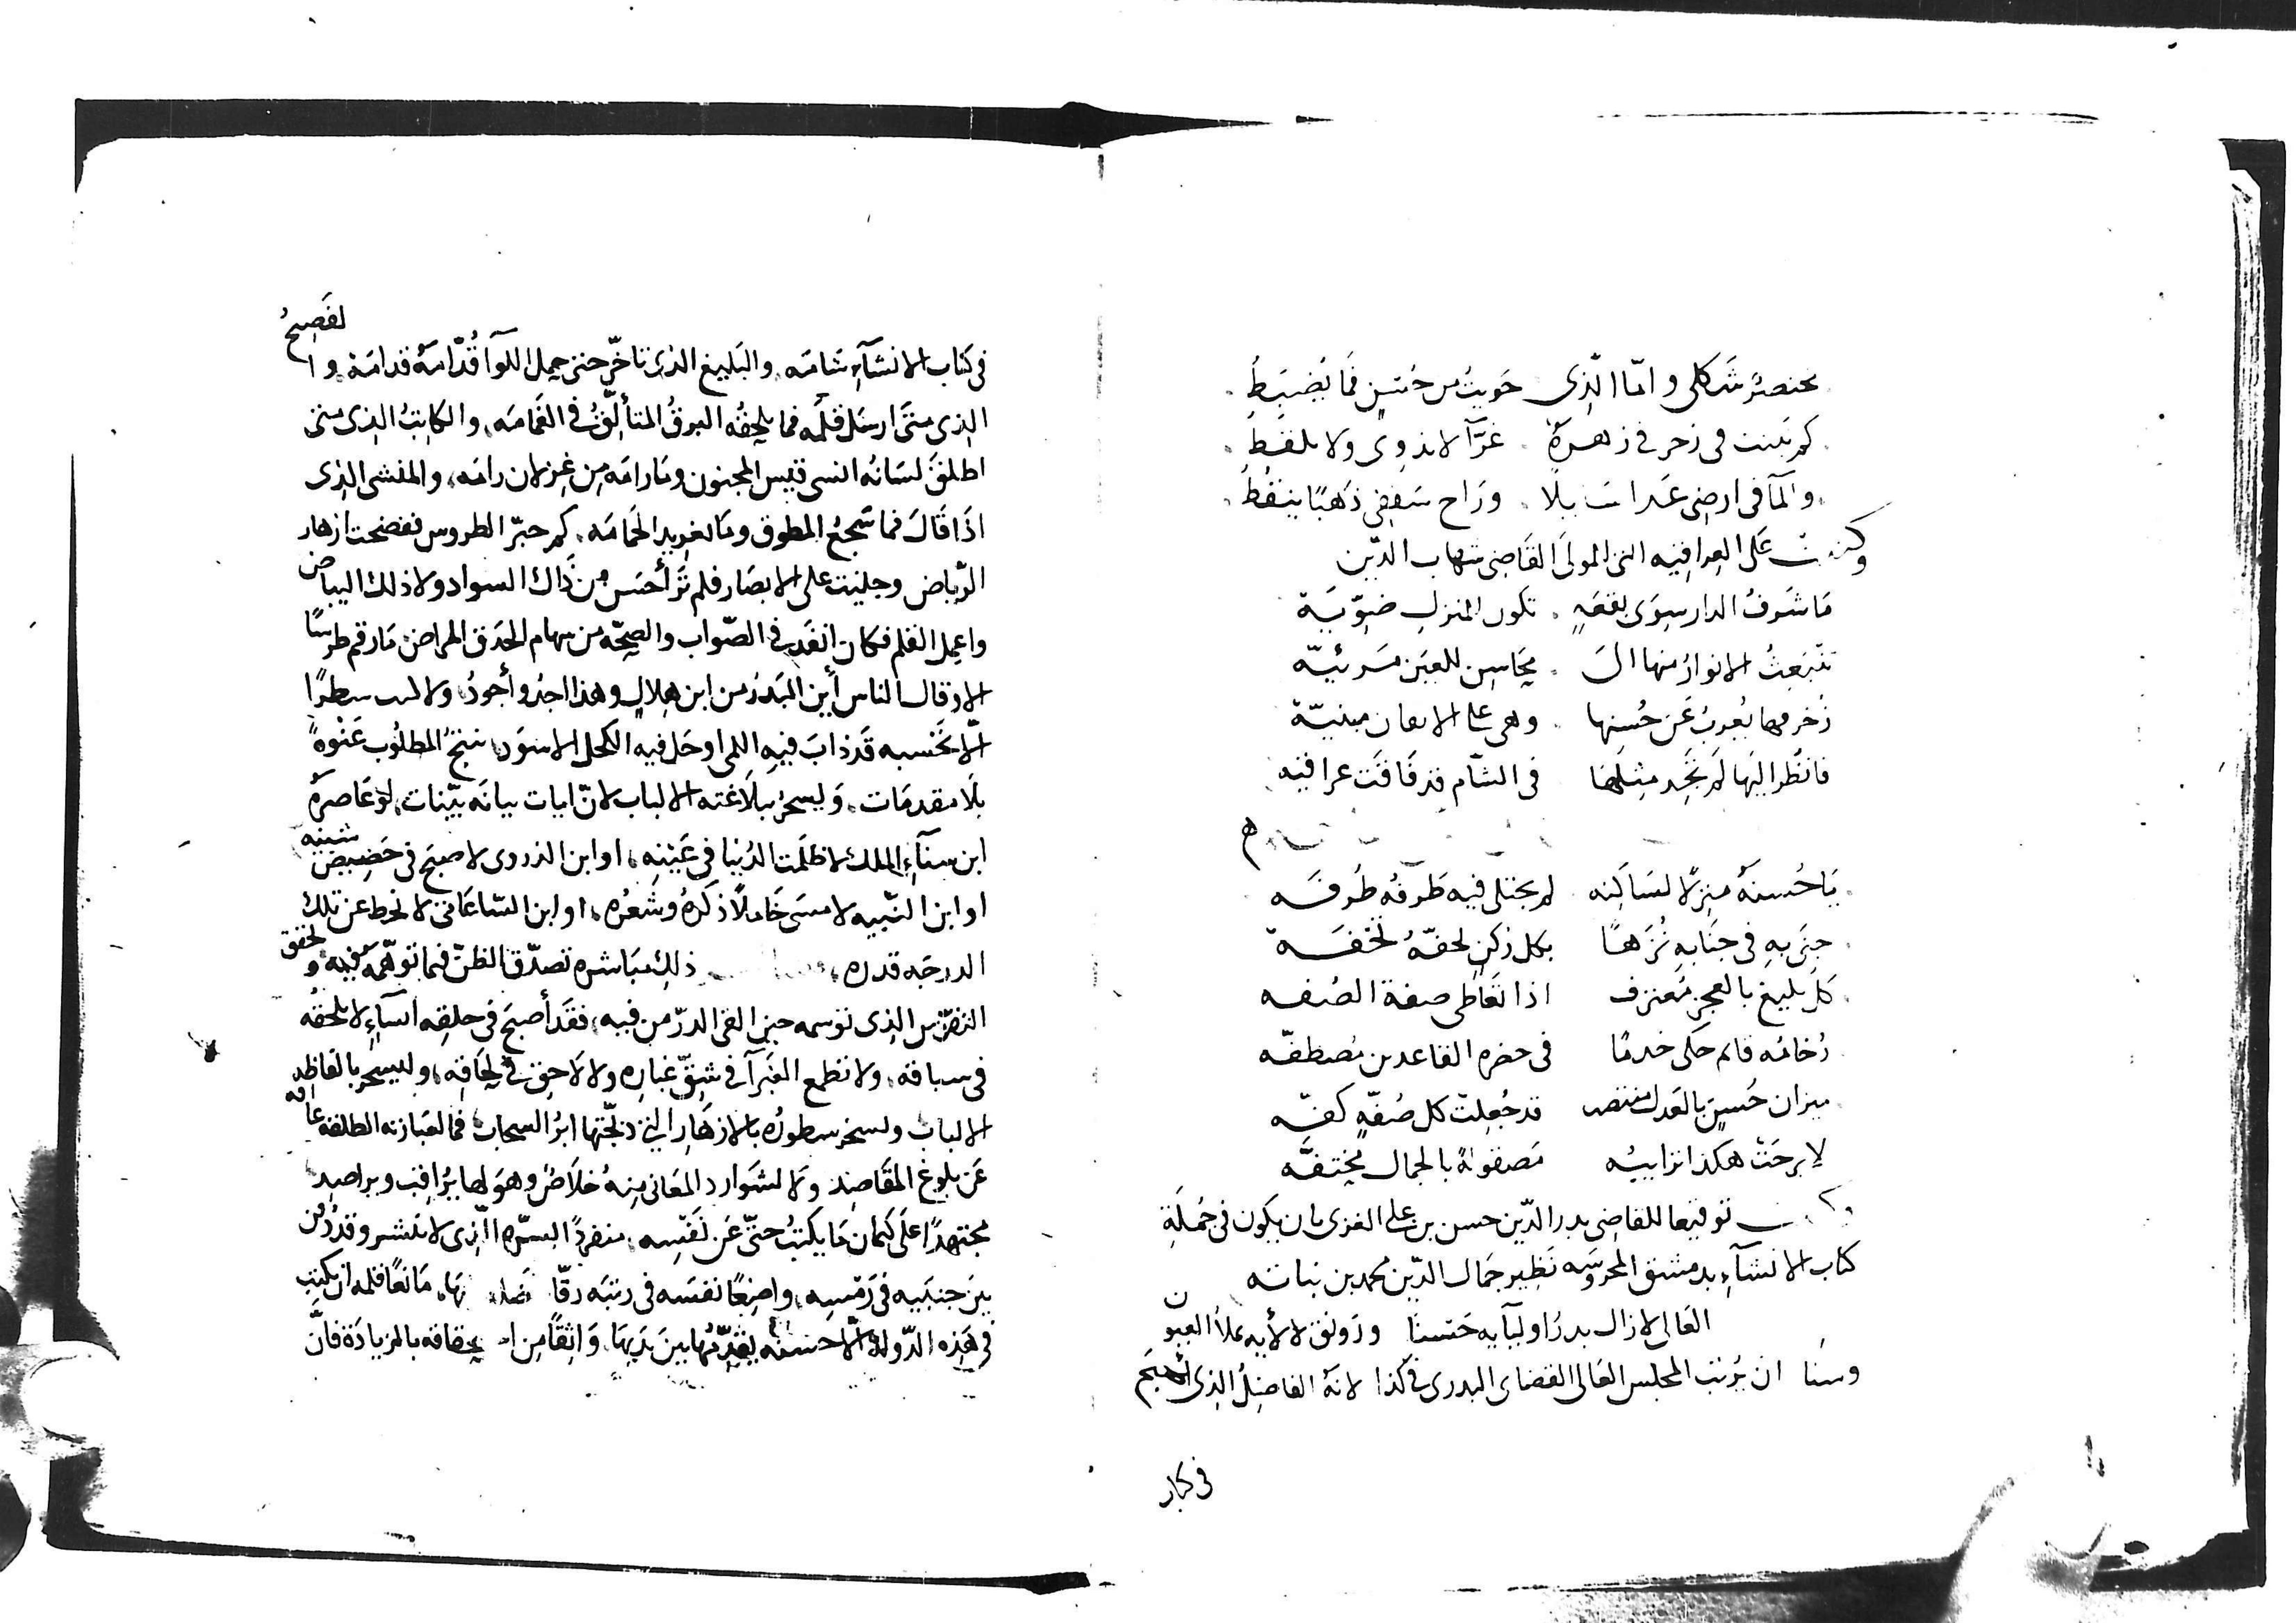 مختصر شكلى وامّا الّذى حَويتُ من حُسنٍ فَمَا يَضبطُ
كم نبت فى زخرفى زهرةٌ غرّآ لا تذوى ولا تلقطُ
والمآ فى ارضى غدا سَابلًا ورَاح سقفى ذهَبًا ينقُطُ
وكتبت عَلى العرافيه التى للمولَى القَاضى شهاب الدّين
مَا شَرفُ الدار سِوَى بقعَةٍ تكون للمنزل ضوّيّة
تنبَعِثُ الانوارُ منها الى محَاسِن للعَين مَرئيّة
زُخرفها يُعربُ عَن حُسنها وهى على الاتقان مبنيّة
فانظُر اليهَا لَم تَجد مِثلهَا فى الشّام قد فَاقَت عرافيه
يَا حُسنهُ منزلًا لسَاكِنه لم يجتلى فيه طَرفُه طُرفَه
حتى بهِ فى جنَابهِ نُزَهًا بكل ركنٍ لحفّهُ تحُفَه
كلّ بليغ بالعجز مُعترف اذا تعَاطى صفة الصُفه
رُخامُه قائم حَكى خدمًا فى حضره القاعدين مُصطفّه
ميزان حُسنٍ بالعَدل منتصب قد جُعِلت كل صُفّهٍ كفّه
لا برحَتْ هكذا ترابيُه مَصقولةً بالجمال مُحتفَّه
وكتبت توقيعا للقاضى بدر الدّين حسن بن على الغزى بان يكون فى جُملَةِ
كتاب الانشآءِ بدمشق المحروسَه نَظير جمَال الدّين محمد بن نباته
العَالى لا زال بدرُ اوليآيه حَسنًا ورَونق لالأيه يملأ العيون
وسنَا ان يُرتب المجلس العَالى القضاى البدرى فى كذا لانهُ الفاضِلُ الذِى اصبَح
فى كتاب
فى كتاب الانشآءِ شَامَه والبَليغ الذى تاخّر حتى حمل اللوآ قُدّامَهُ قدامَة والفَصِيحُ
الذى متى ارسَل قلمَه فما يلحقُه البرقُ المتألّقُ فى الغمامَه والكاتِبُ الذى متى
اطلقَ لسَانُه انسى قيس المجنون ومَا رامَه مِن غِزلان رامَه والمنشى الذى
اذَا قَالَ فما سَجعُ المطوق ومَا تغريد الحَمامَه كم حبّر الطروس ففضحت ازهار
الرّياض وجليت على الابصَار فلم تَرَ أحسَن مِن ذَاك السواد ولا ذلك البياض
واعمِل القلم فكان انفَد فى الصّواب والصِحّه من سهام الحَدق المراض مَا رقم طرسًا
الا وقال الناس أين البَدرُ من ابن هِلالٍ وهذا اجدُ وأجودُ ولا كتب سطرًا
الّا تحَسبه قَد ذابَ فيهِ اللمى او حَل فيه الكحل الاسوَد ينتجُ المطلُوب عَنْوةً
بلَا مقدمَات وَيسحرُ ببلَاغته الالباب لانّ ايات بيانَه بيّنات لو عَاصرهُ
ابن سنآءِ الملك لاظلَمت الدُنيا فى عَينِه او ابن الذروى لاصبَح فى حَضِيض شينه
او ابن النّبيه لامسَى خَاملًا ذكرُهُ وشعُره او ابن السّاعَاتى لانحط عن تلك
الدرجَه قدره ذلِك مبَاشره تصدّق الظنّ فيما توهّمَه فيه وتحقق
التفرّس الذى توسمه حين القى الدرّ من فيه فقَد أصبَح فى حلبِه انشآءٍ لا يلحَقُه
فى سباقه ولا تطمع الغبرآ فى شقّ غبَارِه ولا لَاحق فى لحَاقِه وليسحر بالفاظه
الالباب ولسخر سطورُه بالازهَارِ التى دبّجتها ابرُ السحاب فما لعبَارته الطلقه عاقه
عَن بلوغ المقَاصِد ومَا لشَوارد المعَانى مِنهُ خَلاصٌ وهوَ لها يُرَاقب ويراصِد
مجتهدًا عَلَى كتمان مَا يكتبُ حتّى عَن نَفسِه منفردًا بالسرّه الّذى لا ينشر وقدُدُفن
بينَ جنبَيه فى رَمسِه واضِعًا نفسَه فى رتبَه رقّا مَانعًا قلمه ان يكتب
فى هَذه الدّوله الّا حسنه يقدّمُها بينَ يَديهَا وَاثِقًا مِن استحقاقه بالمزيادَة فانَّ